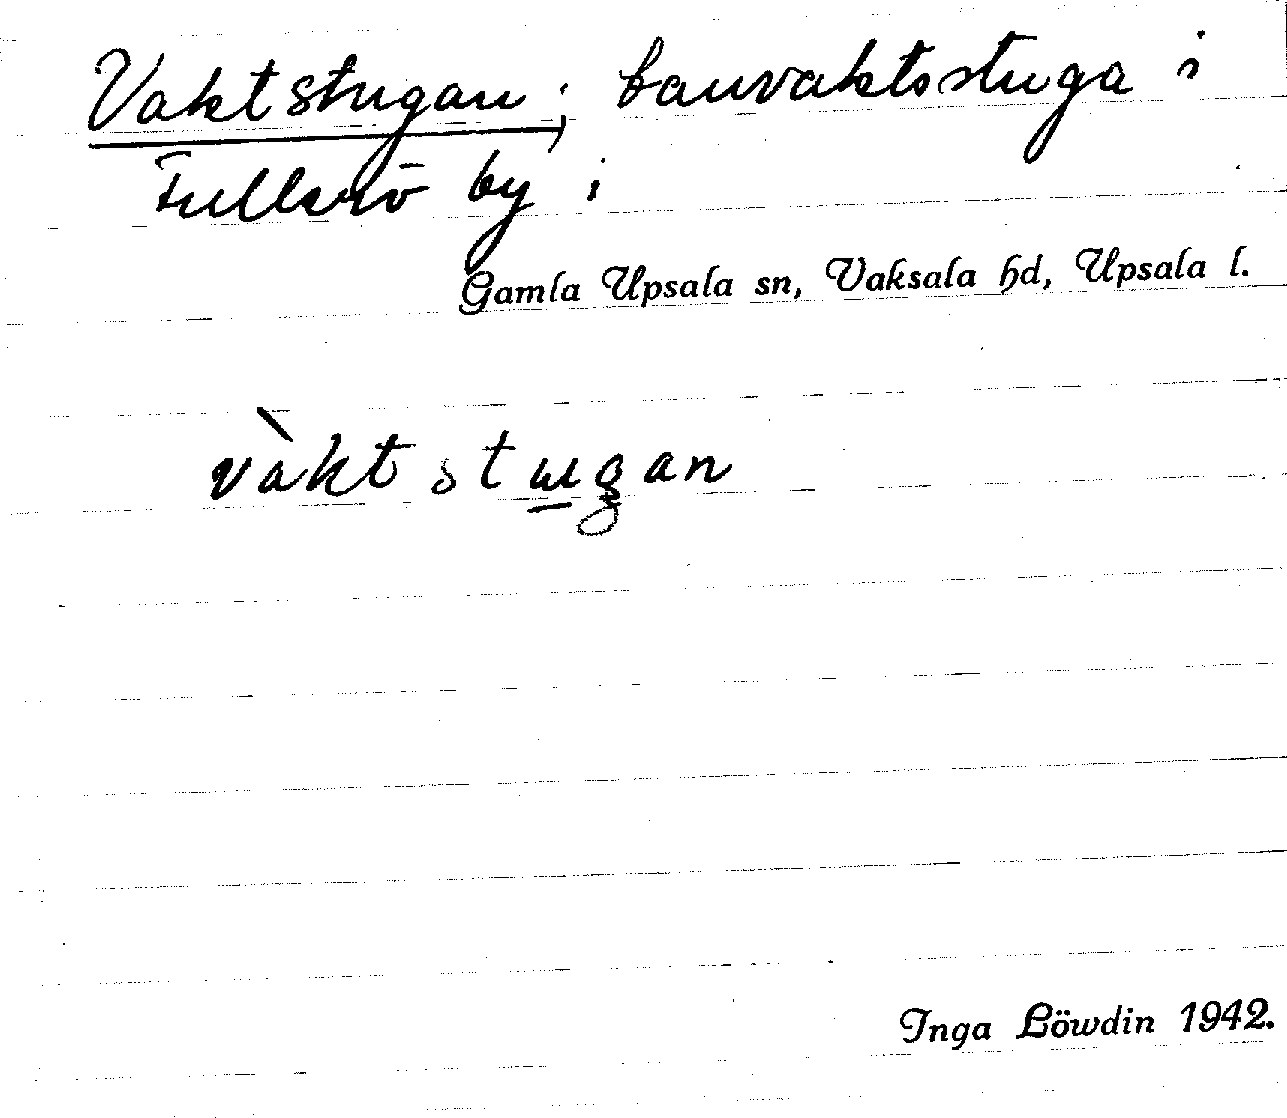 Vaktstugan; banvaktsstuga i
Fullerö by i
Gamla Upsala sn, Vaksala hd, Upsala l.
vàktstugan
Inga Löwdin 1942.